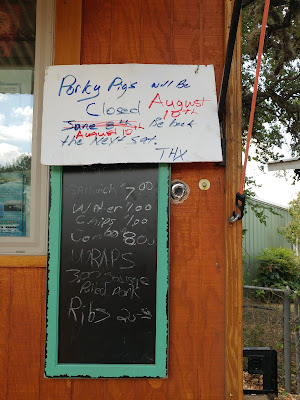 Porky Pigs will Be
Closed August
10th
June 8th Be back
August 10th
the next sat.
THX
Sandwich 7.00
Water 1.00
Chips 1.00
Combo 8.00
WRAPS
Pulled Pork
Ribs